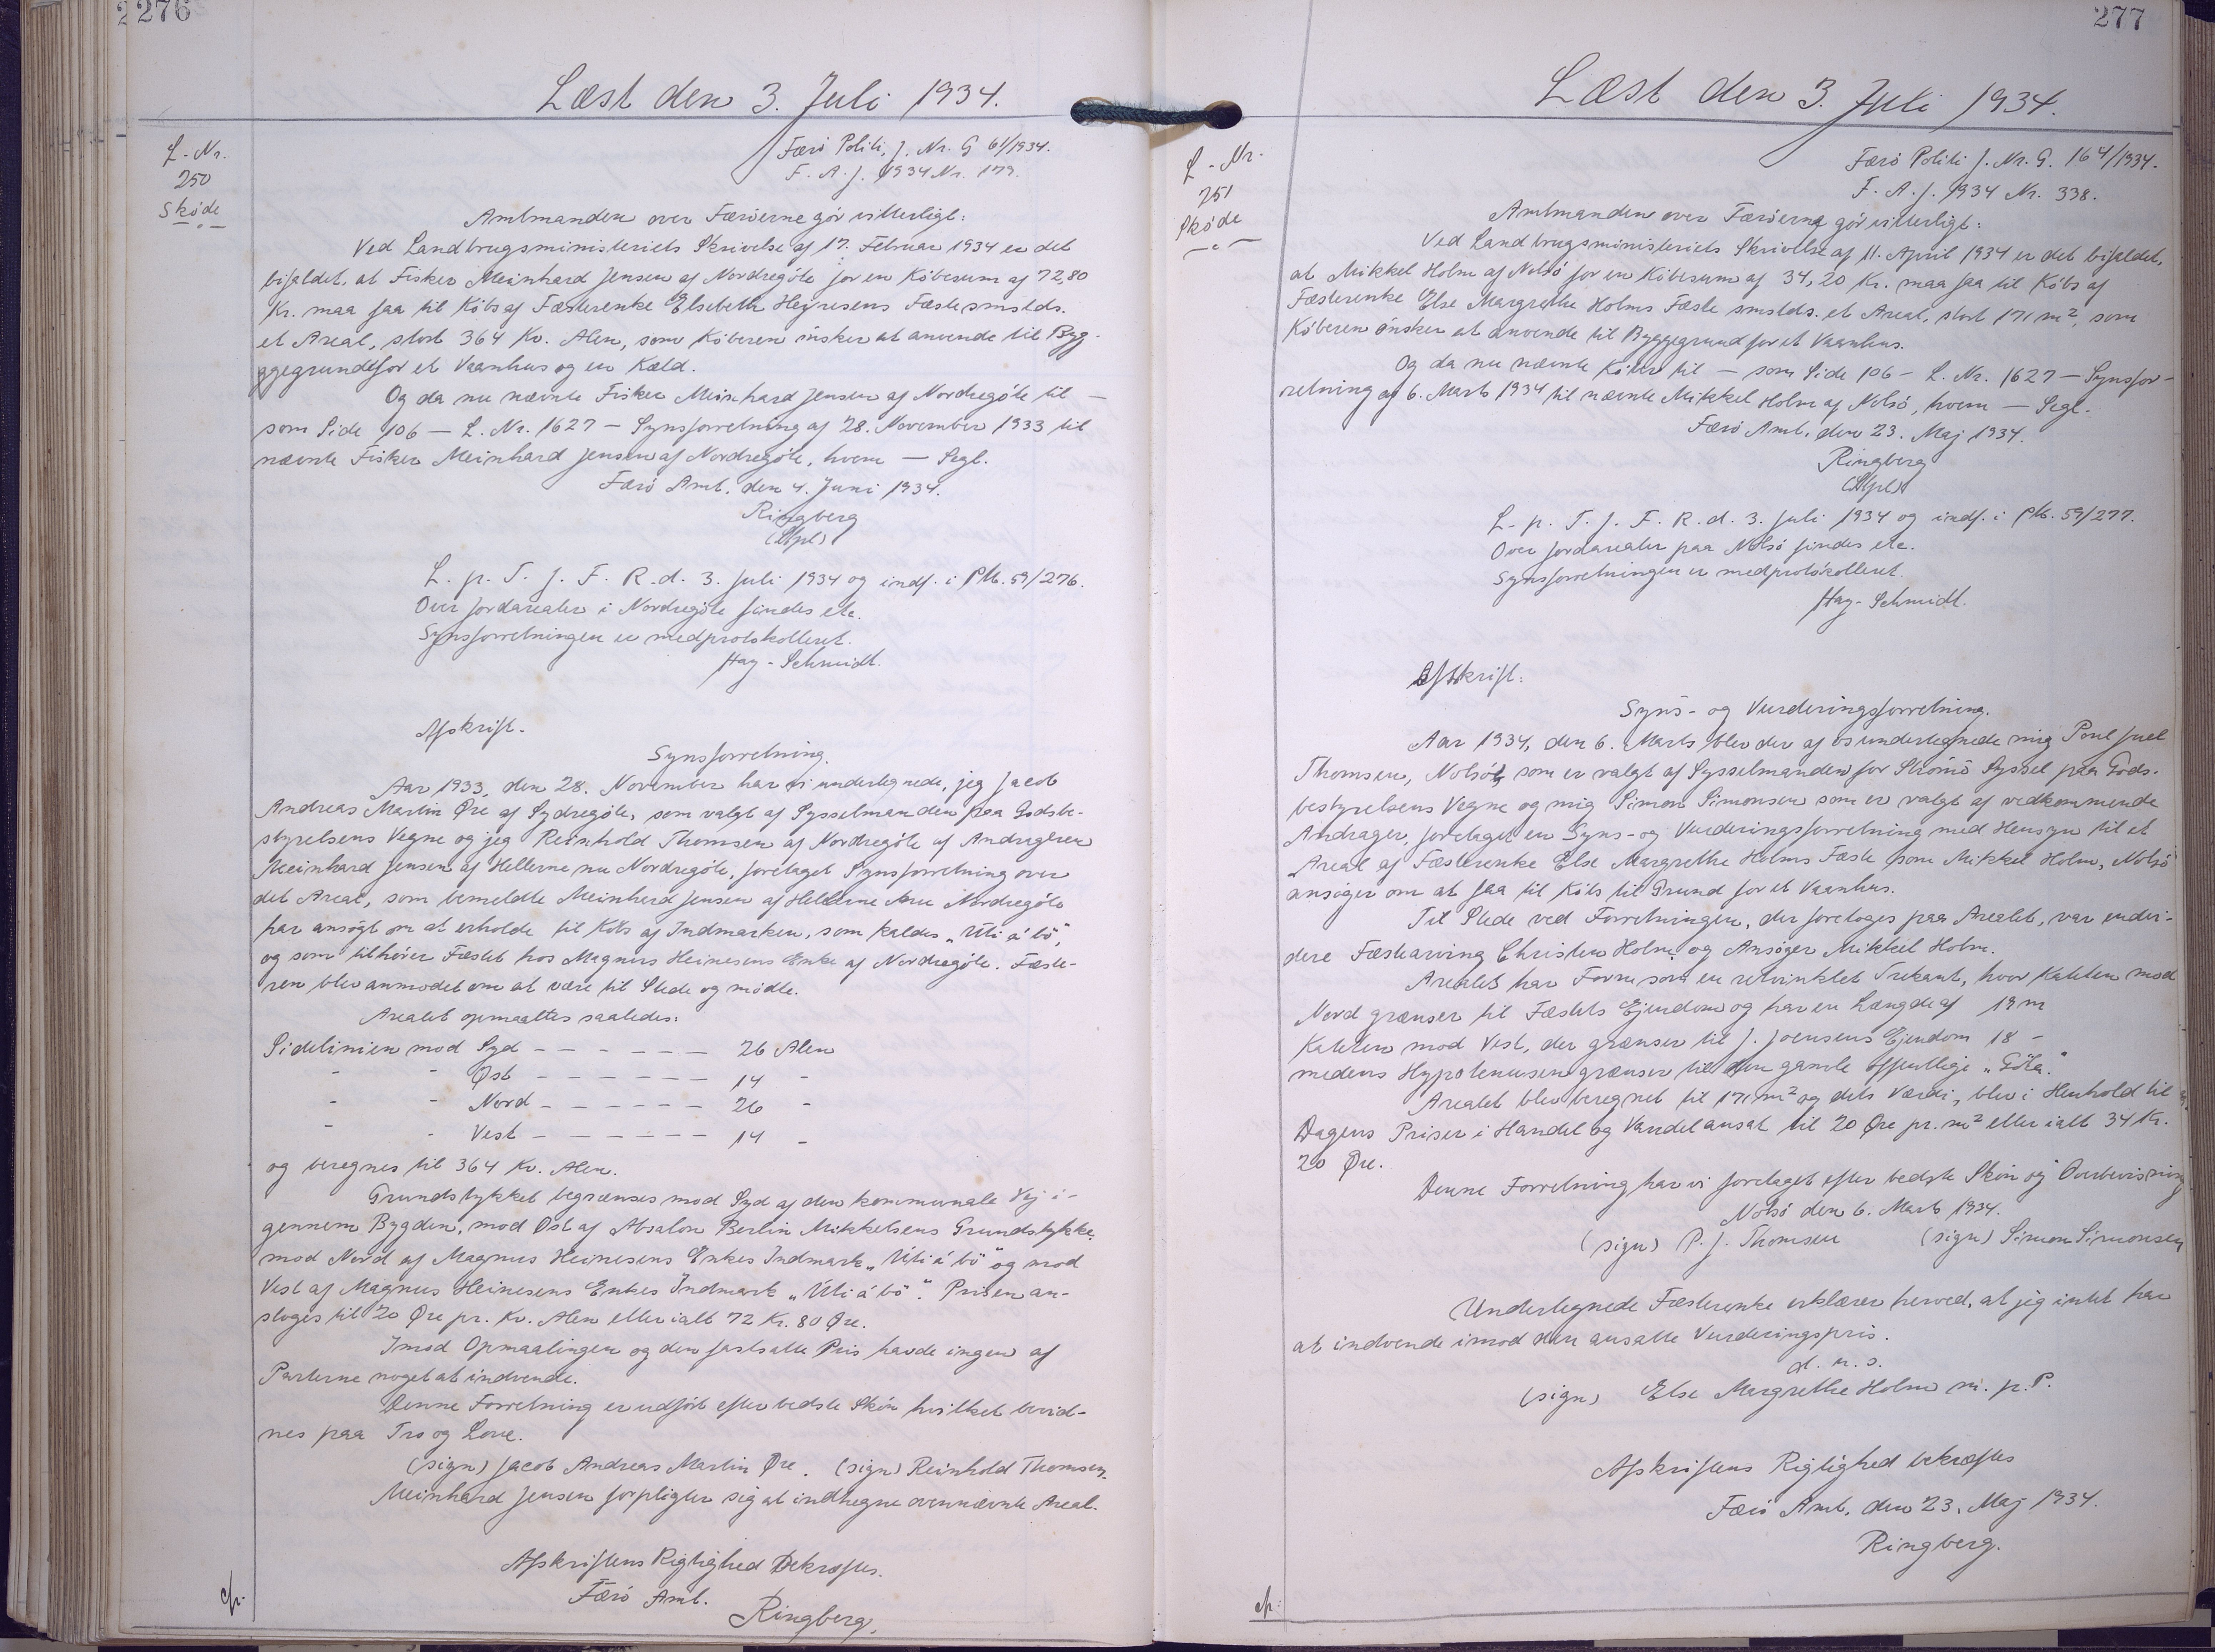 276
Læst den 3. Juli 1934.
L-Nr.
250
Sköde
Færö Politi, J. Nr. G 61/1934.
F. A. J. 1934 Nr. 179.
Amtmanden over Færöerne gör vitterligt:
Ved Landbrugsministeriets Skrivelse af 17. Februar 1934 er det
bifaldet, at Fisker Meinhard Jensen af Nordregöte for en Köbesum af 72,80
Kr. maa faa til Köbs af Fæsterenke Elsebeth Heinesens Fæste smstds.
et Areal, stort 364 Kv. Alen, som Köberen önsker at anvende til Byg-
ggegrund for et Vaanhus og en Kæld.
Og da nu nævnte Fisker Meinhard Jensen af Nordregöte til —
som Side 106 — L. Nr. 1627 — Synsforretning af 28. November 1933 til
nævnte Fisker Meinhard Jensen af Nordregöte, hvem — Segl.
Færö Amt, den 4. Juni 1934.
Ringberg
(Stpl)
L. p. T. f. F. R. d. 3. Juli 1934 og indf. i PM. 59/276.
Over Jordarealer i Nordregöte findes etc.
Synsforretningen er medprotokolleret.
Hag-Schmidt.
Afskrift.
Synsforretning.
Aar 1933, den 28. November har vi undertegnede, jeg Jacob
Andreas Martin Øre af Sydregöte, som valgt af Sysselmanden paa Godsbe-
styrelsens Vegne og jeg Reinhold Thomsen af Nordregöte af Andrageren
Meinhard Jensen af Hellerne nu Nordregöte, foretaget Synsforretning over
det Areal, som bemeldte Meinherd Jensen af Hellerne nu Nordregöte
har ansögt om at erholde til Köbs af Indmarken, som kaldes „Úti á bö",
og som tilhörer Fæstet hos Magnus Heinesens Enke af Nordregöte. Fæste-
ren blev anmodet om at være til Stede og mödte.
Arealet opmaaltes saaledes:
Sidelinien mod Syd — — — — — — 26 Alen
- - Øst — — — — — — 14 -
- - Nord — — — — — — 26 -
- - Vest — — — — — — 14 -
og beregnes til 364 Kv. Alen.
Grundstykket begrænses mod Syd af den kommunale Vej i-
gennem Bygden, mod Øst af Absalon Berlin Mikkelsens Grundstykke,
mod Nord af Magnus Heinesens Enkes Indmark „Úti á bö" og mod
Vest af Magnus Heinesens Enkes Indmark „Úti á bö". Prisen an-
sloges til 20 Øre pr. Kv. Alen eller ialt 72 Kr. 80 Øre.
Imod Opmaalingen og den fastsatte Pris havde ingen af
Parterne noget at indvende.
Denne Forretning er udfört efter bedste Skön hvilket bevid-
nes paa Tro og Love.
(sign) Jacob Andreas Martin Øre. (sign) Reinhold Thomsen.
Meinhard Jensen forpligter sig at indhegne ovennævnte Areal.
Afskriftens Rigtighed bekræftes.
Færö Amt.
Ringberg.
cfr.
277
Læst den 3. Juli 1934.
L-Nr.
251
Sköde
Færö Politi J. Nr. G. 164/1934.
F. A. J. 1934 Nr. 338.
Amtmanden over Færöerne gör vitterligt:
Ved Landbrugsministeriets Skrivelse af 11. April 1934 er det bifaldet,
at Mikkel Holm af Nolsö for en Köbesum af 34,20 Kr. maa faa til Köbs af
Fæsterenke Else Margrethe Holms Fæste smstds. et Areal, stort 171 m², som
Köberen önsker at anvende til Byggegrund for et Vaanhus.
Og da nu nævnte Köber til — som Side 106 — L. Nr. 1627 — Synsfor-
retning af 6. Marts 1934 til nævnte Mikkel Holm af Nolsö, hvem — Segl.
Færö Amt, den 23. Maj 1934.
Ringberg
(Stpl)
L. p. T. f. F. R. d. 3. Juli 1934 og indf. i PM. 59/277.
Over Jordarealer paa Nolsö findes etc.
Synsforretningen er medprotokolleret.
Hag-Schmidt.
Afskrift:
Syns- og Vurderingsforretning.
Aar 1934, den 6. Marts blev der af os undertegnede mig Poul Juel
Thomsen, Nolsö, som er valgt af Sysselmanden for Strömö Syssel paa Gods-
bestyrelsens Vegne og mig Simon Simonsen som er valgt af vedkommende
Andrager, foretaget en Syns- og Vurderingsforretning med Hensyn til et
Areal af Fæsterenke Else Margrethe Holms Fæste som Mikkel Holm, Nolsö
ansöger om at faa til Köbs til Grund for et Vaanhus.
Til Stede ved Forretningen, der foretoges paa Arealet, var endvi-
dere Fæstearving Christen Holm og Ansöger Mikkel Holm.
Arealet har Form som en retvinklet Trekant, hvor Kateten mod
Nord grænser til Fæstets Ejendom og har en Længde af 19 m
Kateten mod Vest, der grænser til J. Joensens Ejendom 18 -
medens Hypotenusen grænser til den gamle offentlige „Göta".
Arealet blev beregnet til 171 m² og dets Værdi, blev i Henhold til
Dagens Priser i Handel og Vandel ansat til 20 Øre pr. m² eller ialt 34 Kr.
20 Øre.
Denne Forretning har vi foretaget efter bedste Skön og Overbevisning
Nolsö den 6. Marts 1934.
(sign) P. J. Thomsen (sign) Simon Simonsen
Undertegnede Fæsterenke erklærer herved, at jeg intet har
at indvende imod den ansatte Vurderingspris.
d. u. s.
(sign) Else Margrethe Holm m. p. P.
Afskriftens Rigtighed bekræftes
Færö Amt, den 23. Maj 1934.
Ringberg.
cfr.